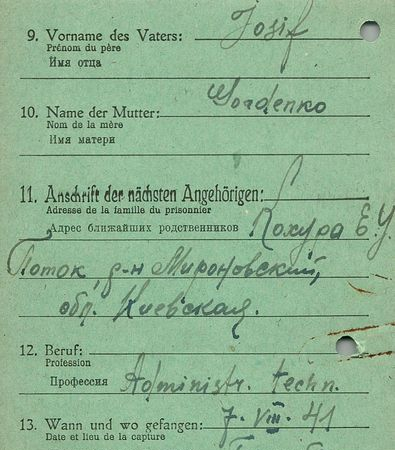 9. Vorname des Vaters: Josif
Prénom du père
Имя отца
10. Name der Mutter: Gordenko
Nom de la mère
Имя матери
11. Anschrift der nächsten Angehörigen:
Adresse de la famille du prisonnier
Адрес ближайших родственников Кохура Е.У.
Поток, р-н Мироновский,
обл. Киевская.
12. Beruf:
Profession
Профессия Administr. techn.
13. Wann und wo gefangen: 7. VIII. 41
Date et lieu de la capture